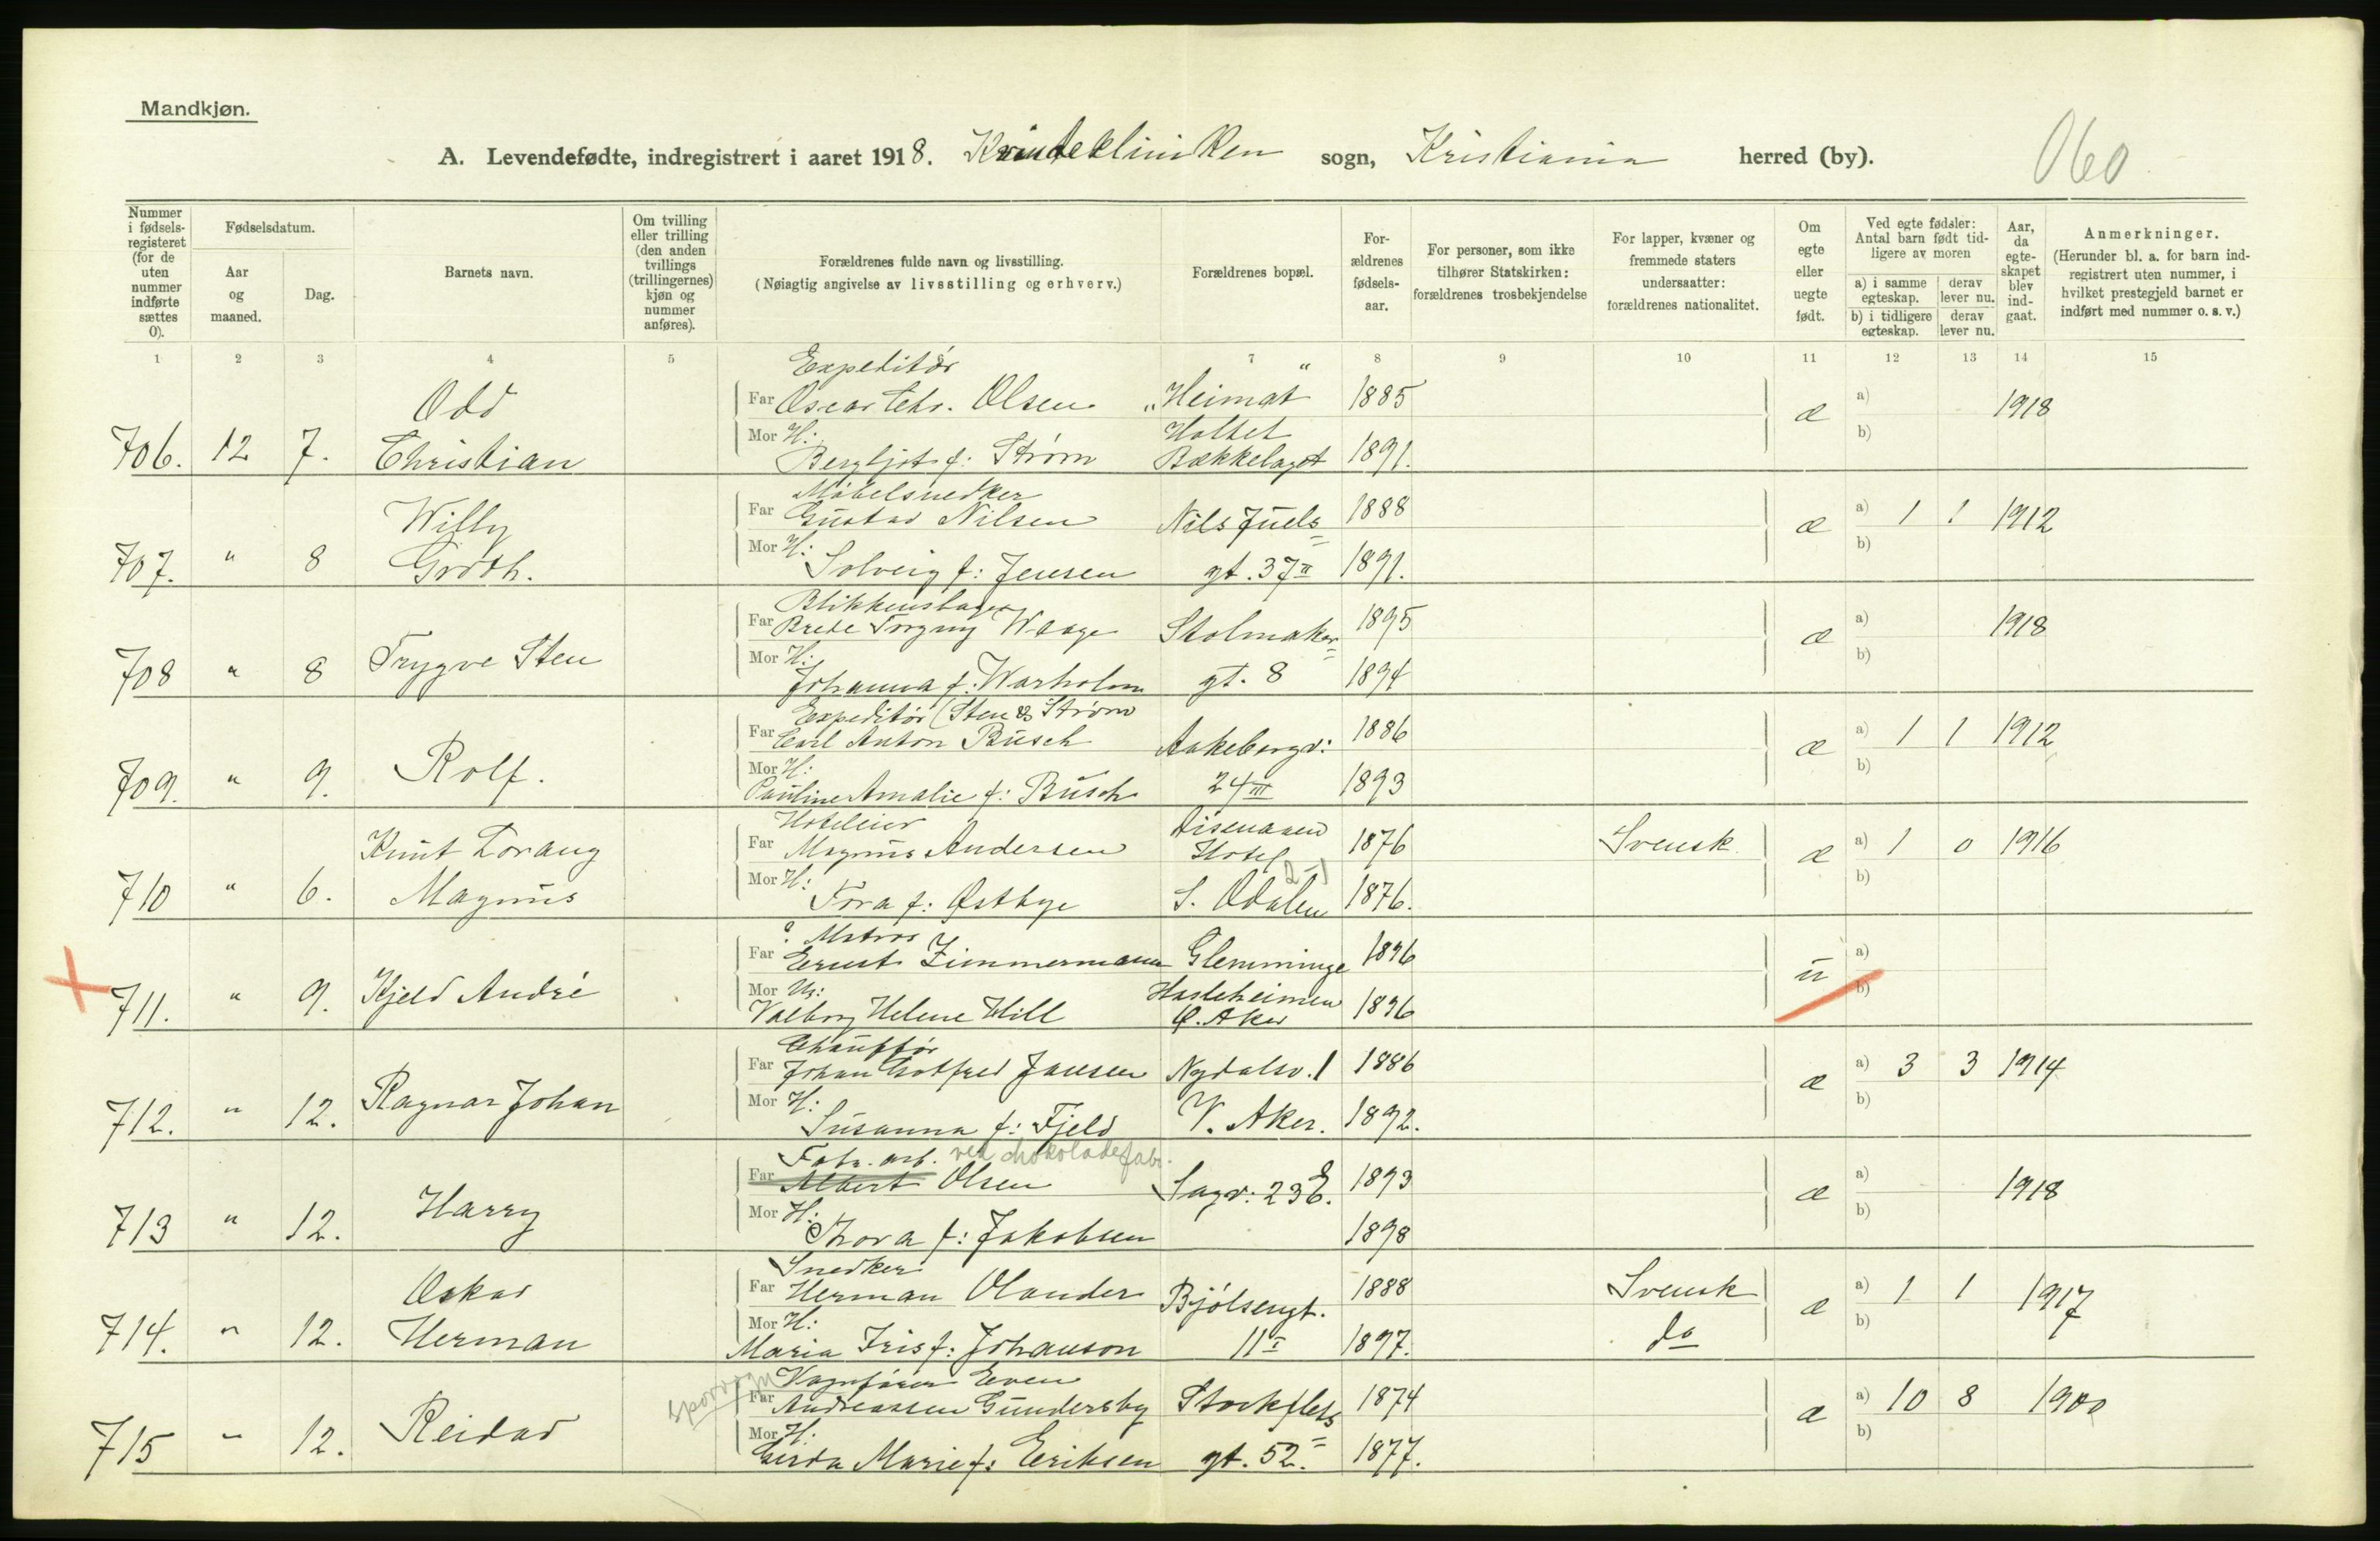 Mandkjøn.
A. Levendefødte, indregistrert i aaret 1918. Kvindeklinikken sogn, Kristiania herred (by). 060
Nummer i fødsels-registeret (for de uten nummer indførte sættes 0).
Fødselsdatum.
Aar og maaned.
Dag.
Barnets navn.
Om tvilling eller trilling (den anden tvillings (trillingernes) kjøn og nummer anføres).
Forældrenes fulde navn og livsstilling.
(Nøiagtig angivelse av livsstilling og erhverv.)
Forældrenes bopæl.
For-ældrenes fødsels-aar.
For personer, som ikke tilhører Statskirken: forældrenes trosbekjendelse
For lapper, kvæner og fremmede staters undersaatter: forældrenes nationalitet.
Om egte eller uegte født.
Ved egte fødsler: Antal barn født tid-ligere av moren
a) i samme egteskap. derav lever nu.
b) i tidligere egteskap. derav lever nu.
Aar, da egte-skapet blev ind-gaat.
Anmerkninger.
(Herunder bl. a. for barn ind-registrert uten nummer, i hvilket prestegjeld barnet er indført med nummer o. s. v.)
1 2 3 4 5 6 7 8 9 10 11 12 13 14 15
Expeditør
Odd Far Oscar Chr. Olsen "Heimat" 1885 a) 1918
æ
Mor H: Holtet b)
706. 12 7. Christian Bergljot f: Strøm Bækkelaget 1891.
Møbelsnedker
Willy Far Gustav Nilsen Nils Juels= 1888 æ a) 1 1 1912
Mor H: b)
707. " 8 Groth. Solveig f: Jensen gt. 37 II 1891.
Blikkenslager
Far Brede Torgny Waage Stolmaker= 1895 æ a) 1918
708 " 8 Trygve Sten Mor H: b)
Johanna f: Warholm gt. 8 1894
Expeditør (Sten & Strøm
Far Carl Anton Busch Aakebergv: 1886 æ a) 1 1 1912
709. " 9. Rolf. Mor H: b)
Pauline Amalie f: Busch 24 III 1893
Hoteleier
Knut Far Magnus Andersen Hotel 1876 Svensk æ a) 1 0 1916
Mor H: 2-1 b)
710 " 6. Magnus Tora f: Østbye S. Odalen 1876.
? Matros
Far Ernst Zimmermann Glemminge 1896 u a)
711. " 9. Kjeld André Mor Ug: Hasleheimen b)
Valborg Helene Hill Ø. Aker 1896
Chauffør
Far Johan Gotfred Jansen Nydalsv. 1 1886 æ a) 3 3 1914
712. " 12. Ragnar Johan Mor H: b)
Susanna f: Fjeld V. Aker. 1892.
Fabr. arb. ved chokoladefabr.
Far Albert Olsen Sagv: 23 E. 1893 æ a) 1918
713 " 12. Harry Mor H: b)
Thora f: Jakobsen 1898
Snedker
Oskar Far Herman Olander Bjølsengt. 1888 Svensk æ a) 1 1 1917
Mor H: b)
714. " 12. Herman Maria Iris f: Johanson 11 I 1897. do
sporvogn Vognfører Even
Far Andreassen Gundersby Stockflets= 1874 æ a) 10 8 1900
Mor H: b)
715 " 12. Reidar Gerda Marie f: Eriksen gt. 52. 1877.